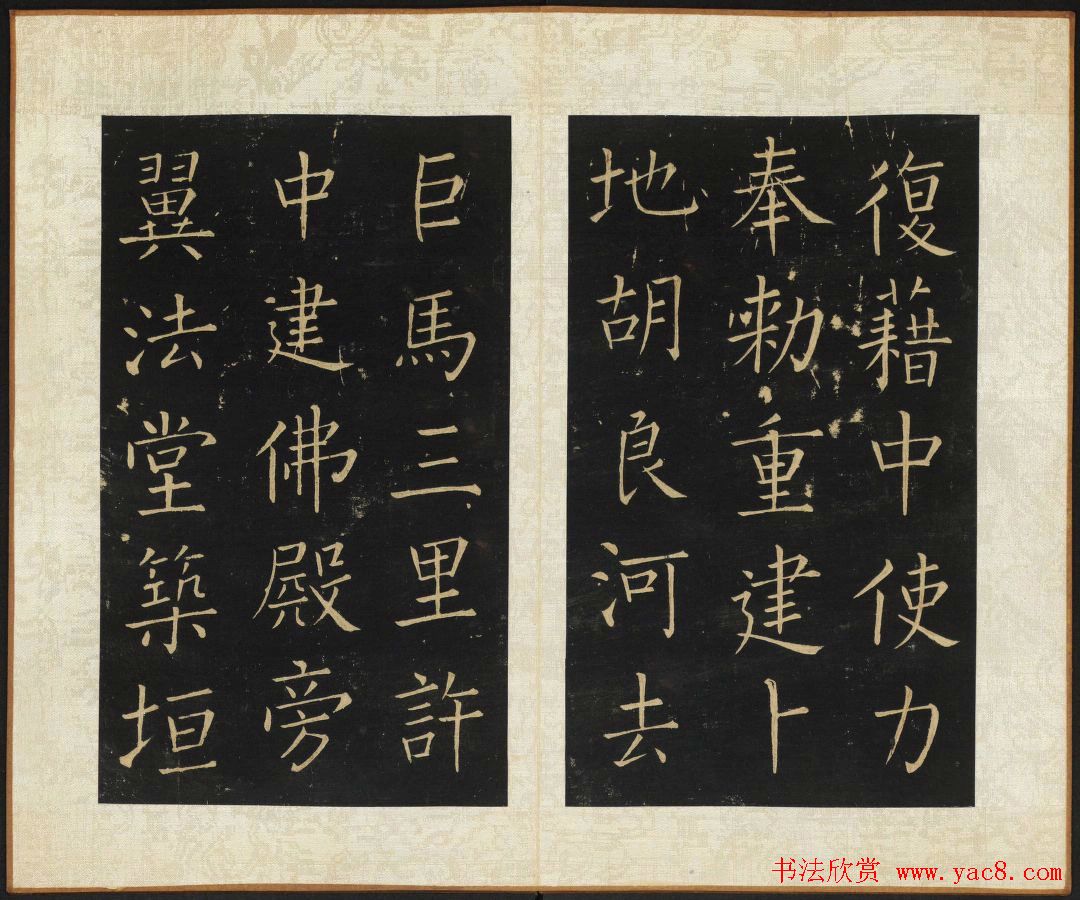 復藉中使力
奉勅重建卜
地胡良河去
巨馬三里許
中建佛殿旁
翼法堂築垣
书法欣赏 www.yac8.com